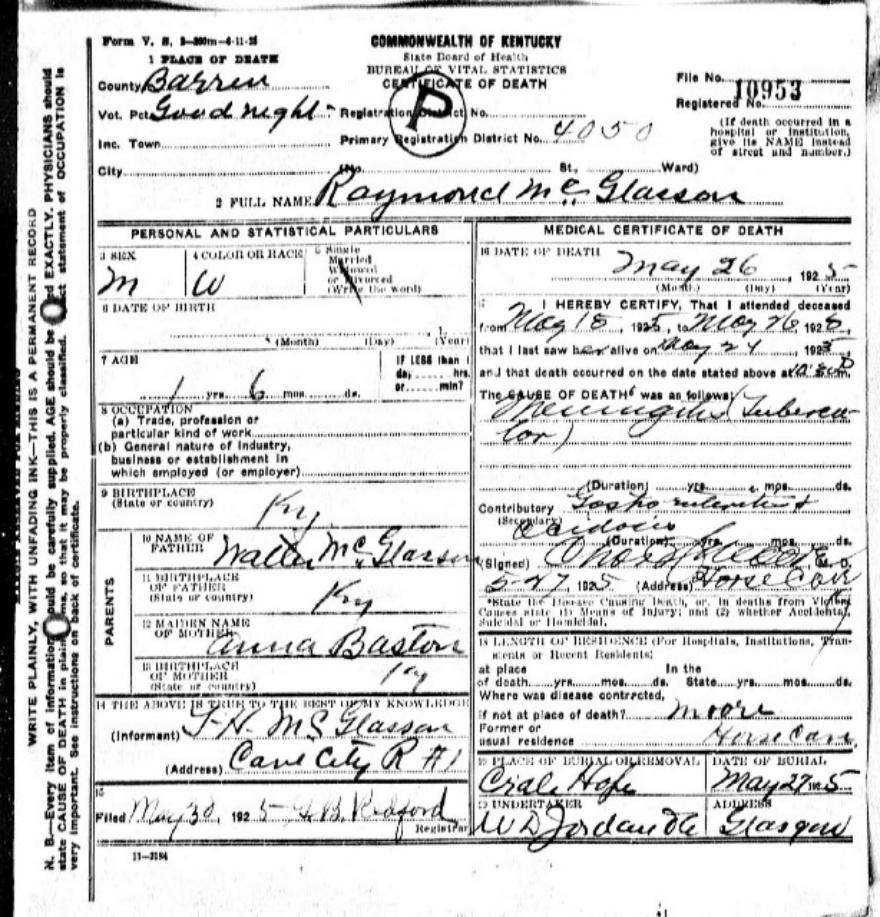 Form V. S. 3-300m-6-11-25
COMMONWEALTH OF KENTUCKY
State Board of Health
BUREAU OF VITAL STATISTICS
CERTIFICATE OF DEATH
1 PLACE OF DEATH
County Barren
Vot. Pct. Goodnight
Inc. Town
City
P
Registration District No.
Primary Registration District No. 4050
(No. St., Ward)
File No. 10953
Registered No.
(If death occurred in a
hospital or institution,
give its NAME instead
of street and number.)
2 FULL NAME Raymond Mc Glasson
PERSONAL AND STATISTICAL PARTICULARS
3 SEX
M
4 COLOR OR RACE
W
5 Single
Married
Widowed
or Divorced
(Write the word)
6 DATE OF BIRTH
(Month) (Day) (Year)
7 AGE
1 yrs. 6 mos. ds.
IF LESS than 1
day hrs.
or min?
8 OCCUPATION
(a) Trade, profession or
particular kind of work
(b) General nature of industry,
business or establishment in
which employed (or employer)
9 BIRTHPLACE
(State or country)
Ky
PARENTS
10 NAME OF
FATHER
Walter Mc Glasson
11 BIRTHPLACE
OF FATHER
(State or country)
Ky
12 MAIDEN NAME
OF MOTHER
Anna Baston
13 BIRTHPLACE
OF MOTHER
(State or country)
Ky
14 THE ABOVE IS TRUE TO THE BEST OF MY KNOWLEDGE
(Informant) Mc Glasson
(Address) Cave City R #1
15
Filed May 30, 1925 Redford
Registrar
11-3184
MEDICAL CERTIFICATE OF DEATH
16 DATE OF DEATH
May 26, 1925
(Month) (Day) (Year)
17 I HEREBY CERTIFY, That I attended deceased
from May 18, 1925, to May 26, 1925,
that I last saw her alive on May 24, 1925,
and that death occurred on the date stated above at m.
The CAUSE OF DEATH* was as follows:
Meningitis (Tubercu-
lor)
(Duration) yrs. mos. ds.
Contributory
(Secondary)
Acidosis
(Duration) yrs. mos. ds.
(Signed) M. D.
5-27, 1925 (Address) Horse Cave
*State the Disease Causing Death, or, in deaths from Violent
Causes state (1) Means of Injury; and (2) whether Accidental,
Suicidal or Homicidal.
18 LENGTH OF RESIDENCE (For Hospitals, Institutions, Tran-
sients or Recent Residents)
at place In the
of death yrs. mos. ds. State yrs. mos. ds.
Where was disease contracted,
if not at place of death? Moore
Former or
usual residence Horse Cave
19 PLACE OF BURIAL OR REMOVAL
Hope
DATE OF BURIAL
May 27 1925
20 UNDERTAKER
W D Jordan
ADDRESS
Glasgow
WRITE PLAINLY, WITH UNFADING INK—THIS IS A PERMANENT RECORD
N. B.—Every item of information should be carefully supplied. AGE should be stated EXACTLY. PHYSICIANS should
state CAUSE OF DEATH in plain terms, so that it may be properly classified. Exact statement of OCCUPATION is
very important. See instructions on back of certificate.